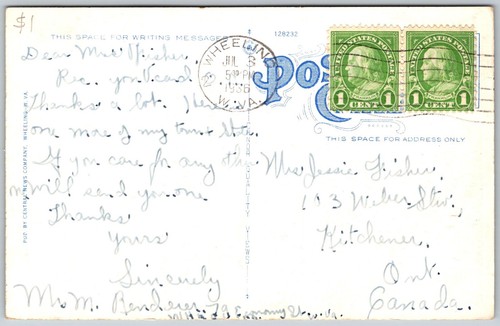 $1
THIS SPACE FOR WRITING MESSAGES
128232
WHEELING
JUL 3
PM
1936
W.VA.
UNITED STATES POSTAGE
1 CENT 1
UNITED STATES POSTAGE
1 CENT 1
THIS SPACE FOR ADDRESS ONLY
PUB. BY CENTRAL NEWS COMPANY, WHEELING, W. VA.
Dear Mrs Fisher.
Rec you card
Thanks a lot. Here
one more of my
If you care for any other
will send you one
Thanks
Yours
Sincerely
Mrs M.
Mrs Jessie Fisher.
193
Kitchener
Ont.
Canada.